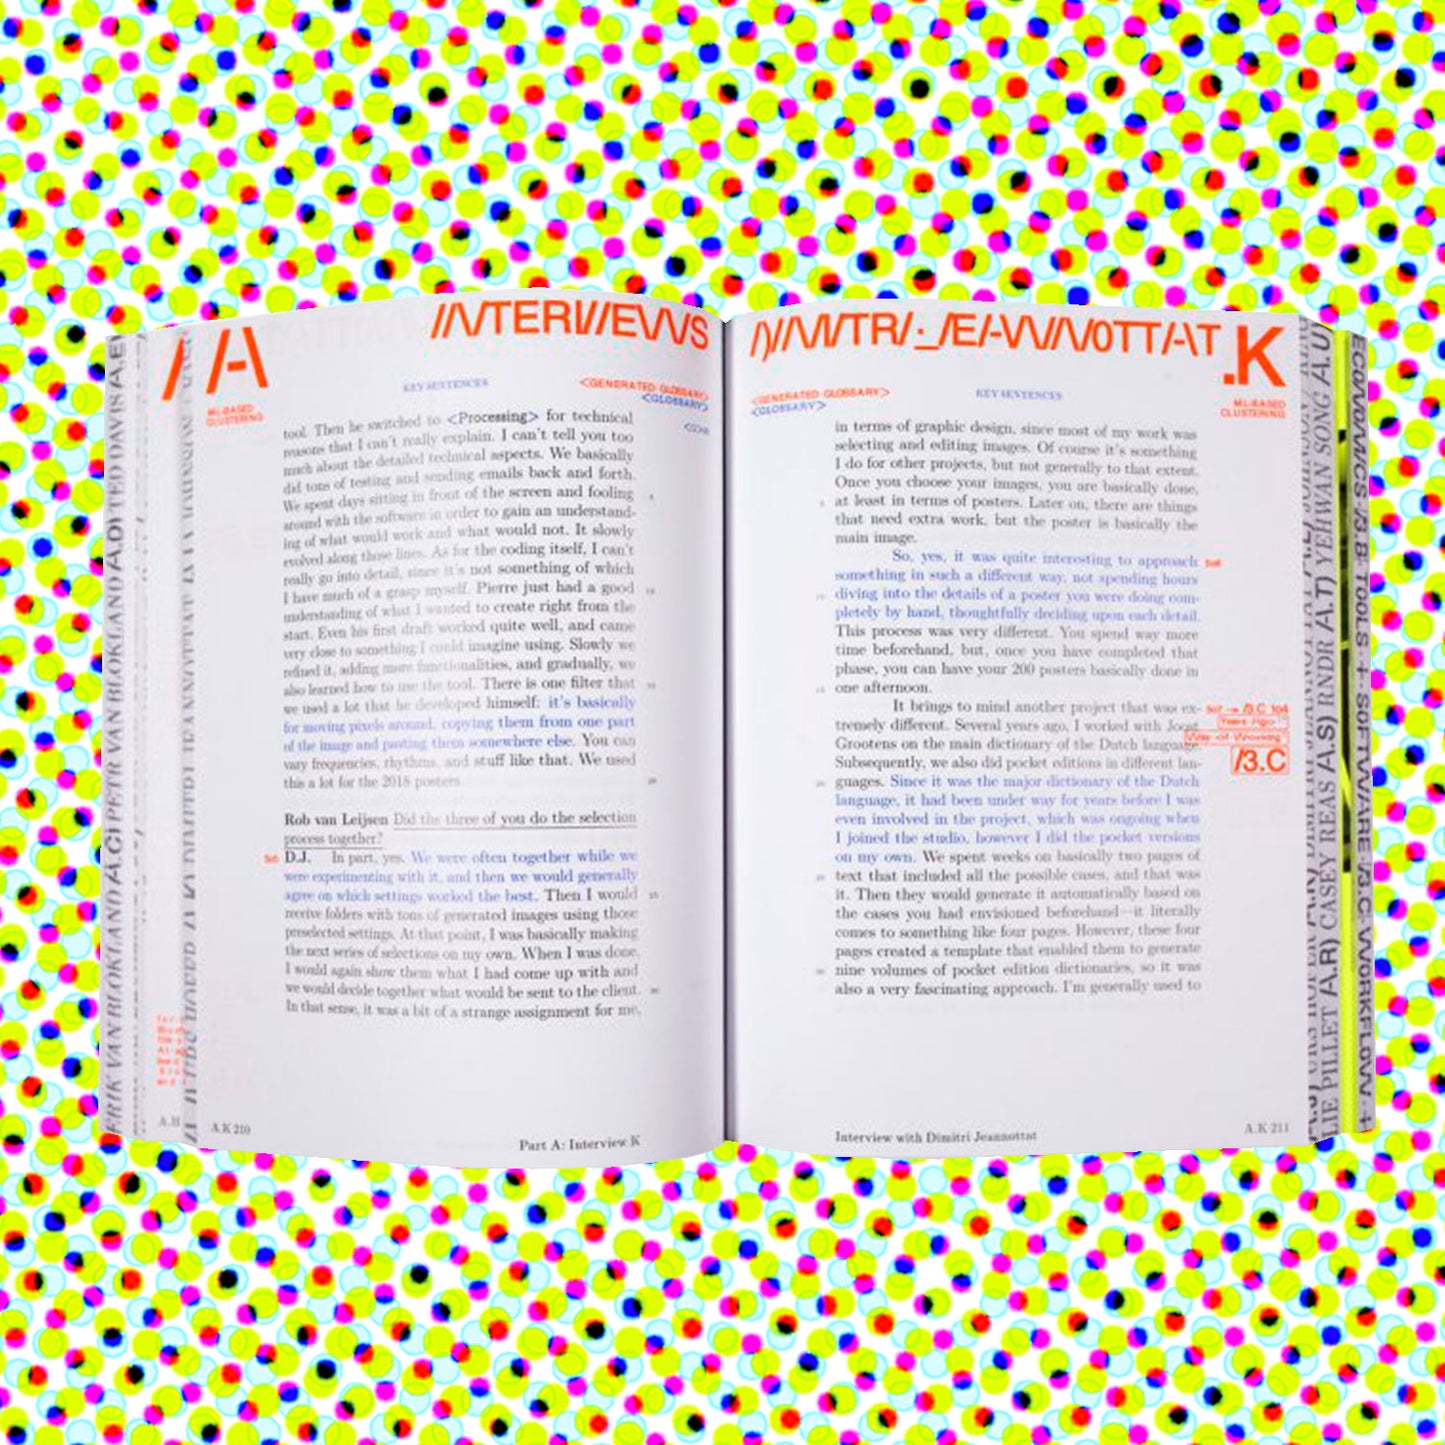 INTERVIEWS
/A
ML-BASED
CLUSTERING
KEY SENTENCES
<GENERATED GLOSSARY>
<GLOSSARY>
tool. Then he switched to <Processing> for technical
reasons that I can't really explain. I can't tell you too
much about the detailed technical aspects. We basically
did tons of testing and sending emails back and forth.
We spent days sitting in front of the screen and fooling
around with the software in order to gain an understand-
ing of what would work and what would not. It slowly
evolved along those lines. As for the coding itself, I can't
really go into detail, since it's not something of which
I have much of a grasp myself. Pierre just had a good
understanding of what I wanted to create right from the
start. Even his first draft worked quite well, and came
very close to something I could imagine using. Slowly we
refined it, adding more functionalities, and gradually, we
also learned how to use the tool. There is one filter that
we used a lot that he developed himself: it's basically
for moving pixels around, copying them from one part
of the image and pasting them somewhere else. You can
vary frequencies, rhythms, and stuff like that. We used
this a lot for the 2018 posters.
Rob van Leijsen Did the three of you do the selection
process together?
D.J. In part, yes. We were often together while we
were experimenting with it, and then we would generally
agree on which settings worked the best. Then I would
receive folders with tons of generated images using those
preselected settings. At that point, I was basically making
the next series of selections on my own. When I was done,
I would again show them what I had come up with and
we would decide together what would be sent to the client.
In that sense, it was a bit of a strange assignment for me,
A.K 210
Part A: Interview K
DIMITRI_JEANNOTTAT
.K
<GENERATED GLOSSARY>
<GLOSSARY>
KEY SENTENCES
ML-BASED
CLUSTERING
in terms of graphic design, since most of my work was
selecting and editing images. Of course it's something
I do for other projects, but not generally to that extent.
Once you choose your images, you are basically done,
at least in terms of posters. Later on, there are things
that need extra work, but the poster is basically the
main image.
So, yes, it was quite interesting to approach
something in such a different way, not spending hours
diving into the details of a poster you were doing com-
pletely by hand, thoughtfully deciding upon each detail.
This process was very different. You spend way more
time beforehand, but, once you have completed that
phase, you can have your 200 posters basically done in
one afternoon.
It brings to mind another project that was ex-
tremely different. Several years ago, I worked with Joost
Grootens on the main dictionary of the Dutch language.
Subsequently, we also did pocket editions in different lan-
guages. Since it was the major dictionary of the Dutch
language, it had been under way for years before I was
even involved in the project, which was ongoing when
I joined the studio, however I did the pocket versions
on my own. We spent weeks on basically two pages of
text that included all the possible cases, and that was
it. Then they would generate it automatically based on
the cases you had envisioned beforehand—it literally
comes to something like four pages. However, these four
pages created a template that enabled them to generate
nine volumes of pocket edition dictionaries, so it was
also a very fascinating approach. I'm generally used to
Years Ago
Way of Working
/3.C
Interview with Dimitri Jeannottat
A.K 211
LIE PILLET A.R) CASEY REAS A.S) RNDR A.T) YEHWAN SONG A.U
ECONOMICS /3.B TOOLS + SOFTWARE /3.C WORKFLOW +
ERIK VAN BLOKLAND A.C) PETR VAN BLOKLAND A.D) TED DAVIS A.E